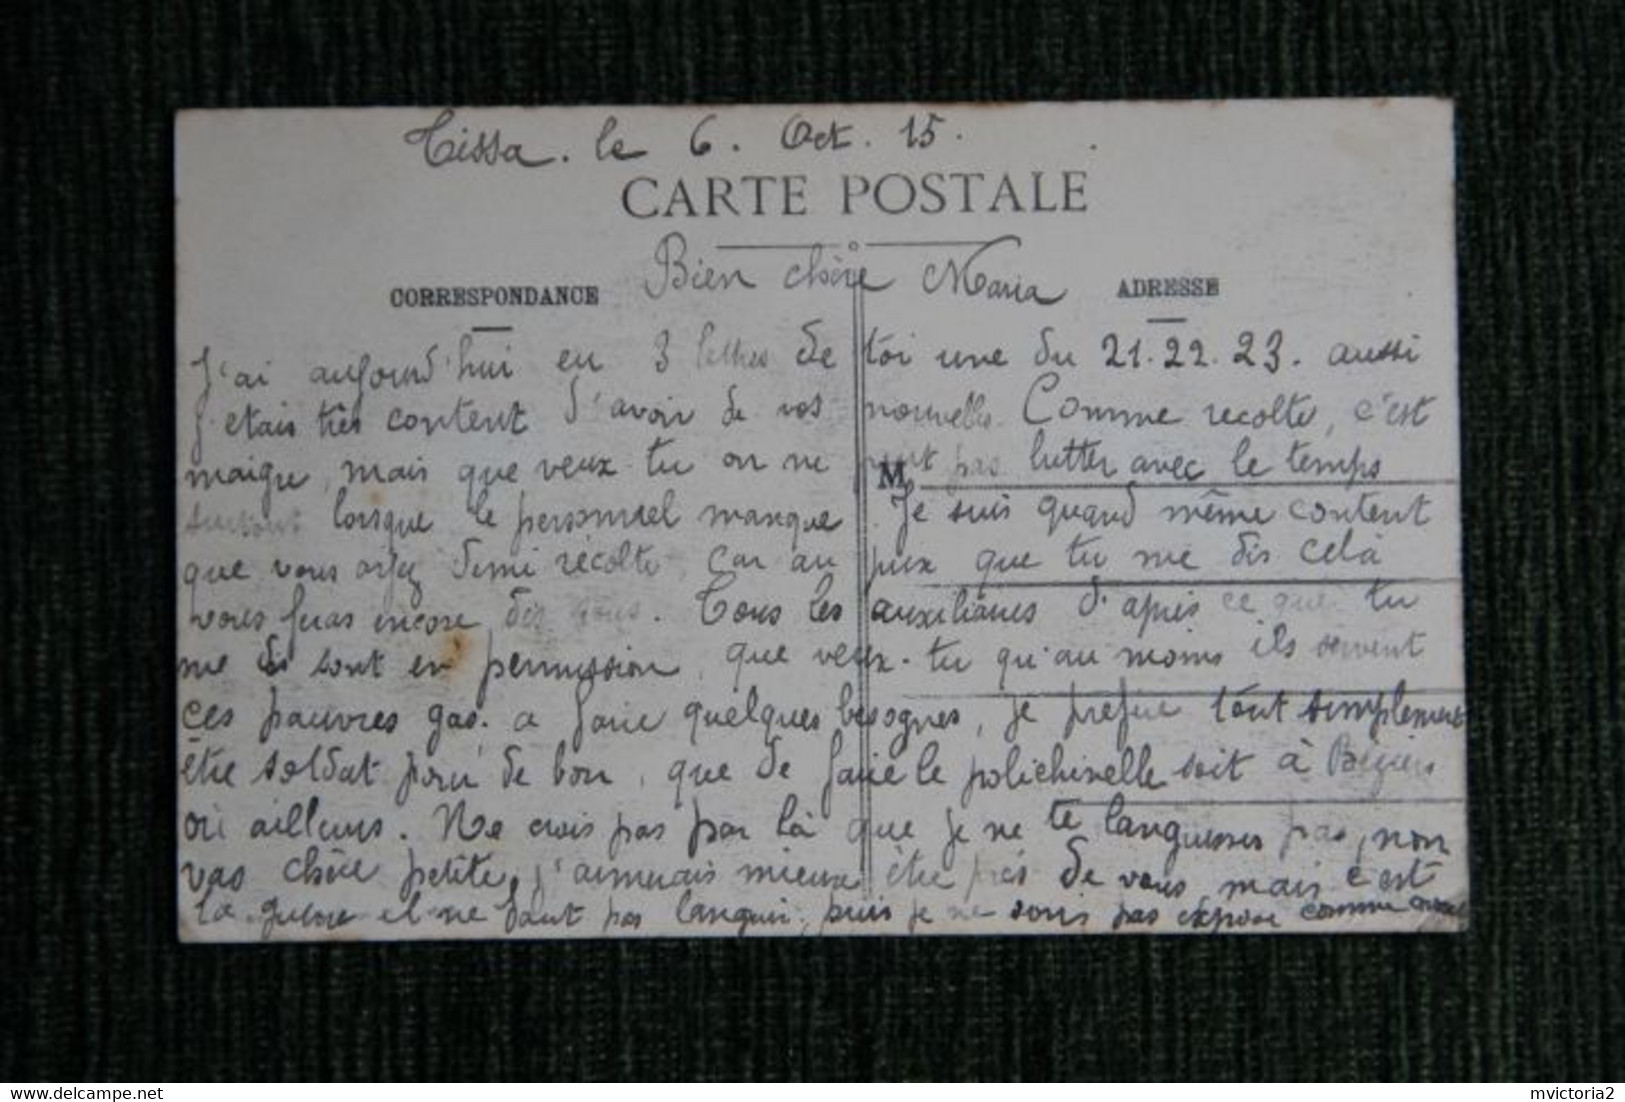 Tissa. le 6. Oct. 15.
CARTE POSTALE
Bien chère Maria
CORRESPONDANCE
ADRESSE
J'ai aujourd'hui eu 3 lettres de toi une du 21.22.23. aussi
j'etais très content d'avoir de vos nouvelles. Comme recolte, c'est
maigre, mais que veux-tu on ne peut pas lutter avec le temps
M
surtout lorsque le personnel manque. Je suis quand même content
que vous ayez demi récolte, car au prix que tu me dis celà
vous fera encore des sous. Tous les auxiliaires d'après ce que tu
me dis sont en permission, que veux-tu qu'au moins ils servent
ces pauvres gas. a faire quelques besognes, je prefere tout simplement
être soldat pour de bon, que de faire le polichinelle soit à Béziers
où ailleurs. Ne crois pas par là que je ne te languisses pas, non
vas chère petite, j'aimerais mieux être près de vous, mais c'est
la guerre il ne faut pas languir, puis je ne suis pas expose comme
mvictoria2